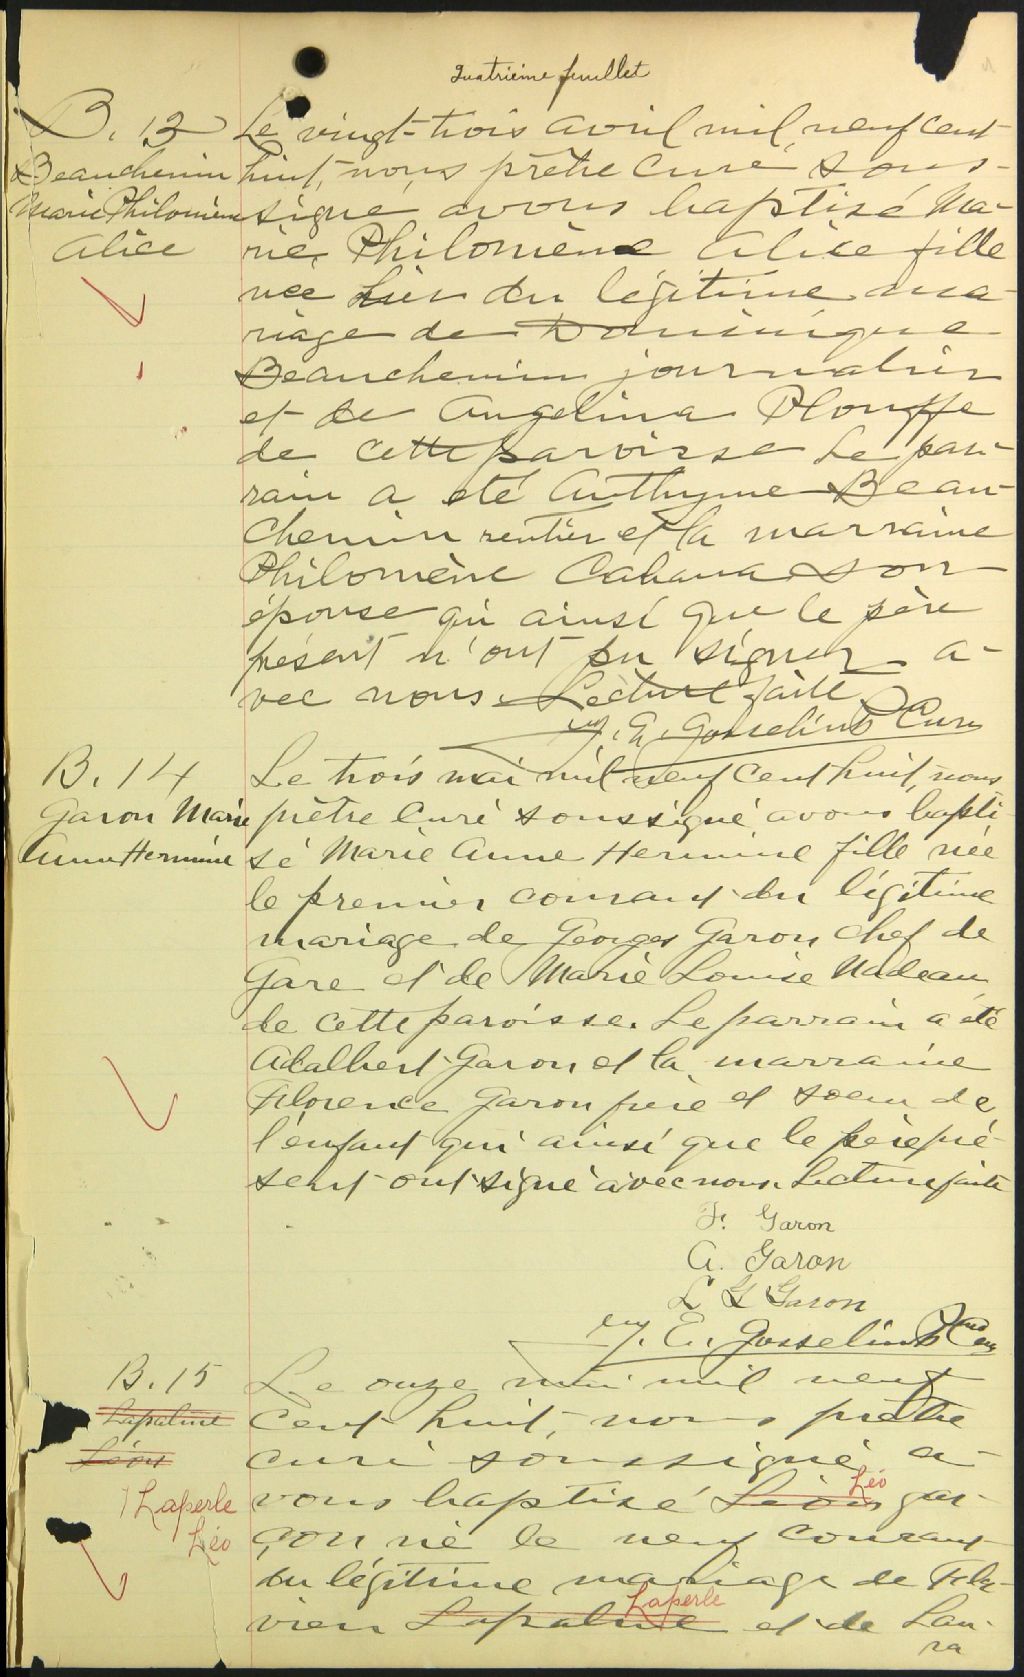 Quatrième feuillet
B. 13
Beauchemin
Marie Philomène
Alice
Le vingt-trois avril mil neuf cent
huit, nous prêtre curé sous-
signé avons baptisé Ma-
rie Philomène Alice fille
née hier du légitime ma-
riage de Dominique
Beauchemin journalier
et de Angelina Plouffe
de cette paroisse Le par-
rain a été Anthyme Beau-
chemin rentier et la marraine
Philomène Cabana son
épouse qui ainsi que le père
présent n'ont pu signer a-
vec nous. Lecture faite
J. E. Gosselin Ptre Curé
B. 14
Garon Marie
Anne Hermine
Le trois mai mil neuf cent huit, nous
prêtre curé soussigné avons bapti-
sé Marie Anne Hermine fille née
le premier courant du légitime
mariage de Georges Garon chef de
Gare et de Marie Louise Nadeau
de cette paroisse. Le parrain a été
Adalbert Garon et la marraine
Florence Garon frère et soeur de
l'enfant qui ainsi que le père pré-
sent ont signé avec nous. Lecture faite
F. Garon
A. Garon
L G Garon
J. E. Gosselin Ptre Curé
B. 15
Lapalme
Léon
Laperle
Léo
Le onze mai mil neuf
cent huit, nous prêtre
curé soussigné a-
vons baptisé Léon Léo gar-
çon né le neuf courant
du légitime mariage de Fla-
vien Lapalme Laperle et de Lau-
ra